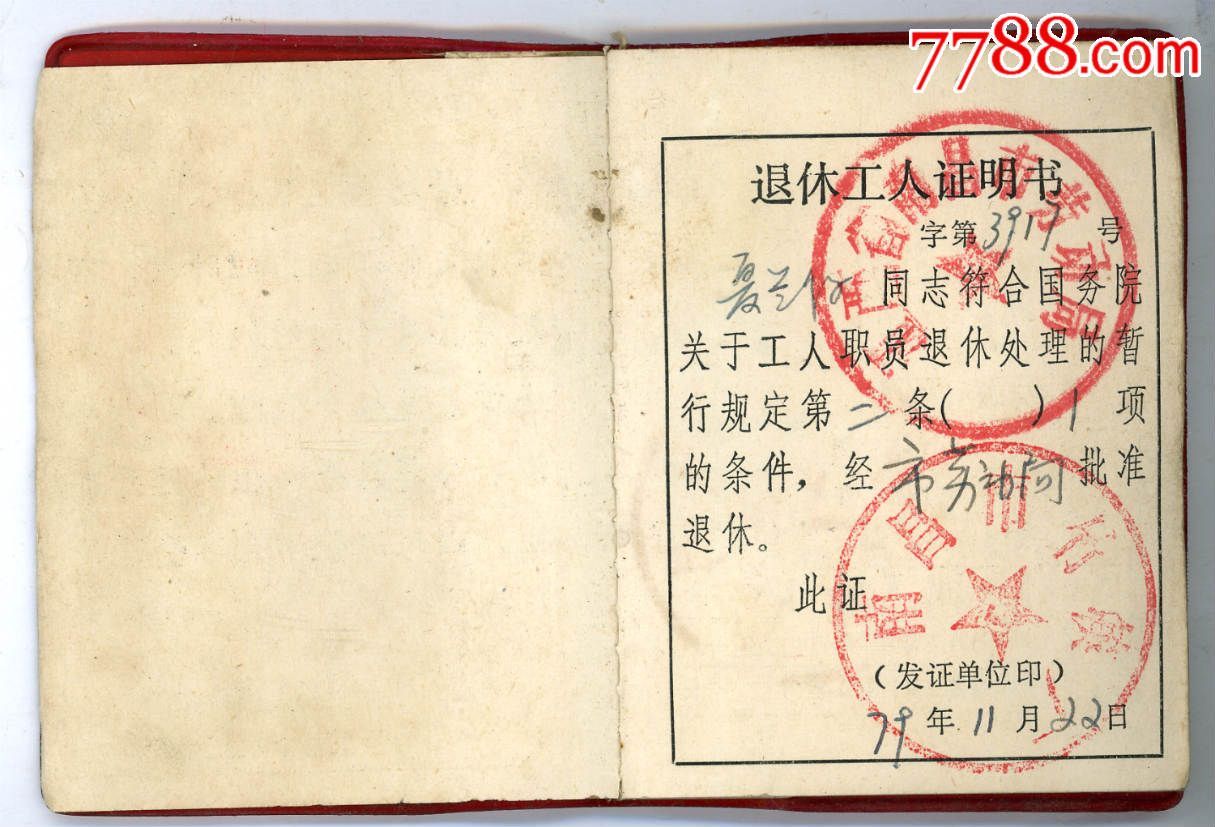 7788.com
退休工人证明书
字第3917号
夏兰 同志符合国务院
关于工人职员退休处理的暂
行规定第二条( )1项
的条件，经市劳动局批准
退休。
此证
（发证单位印）
79年11月22日
江西省南昌市劳动局
南昌市